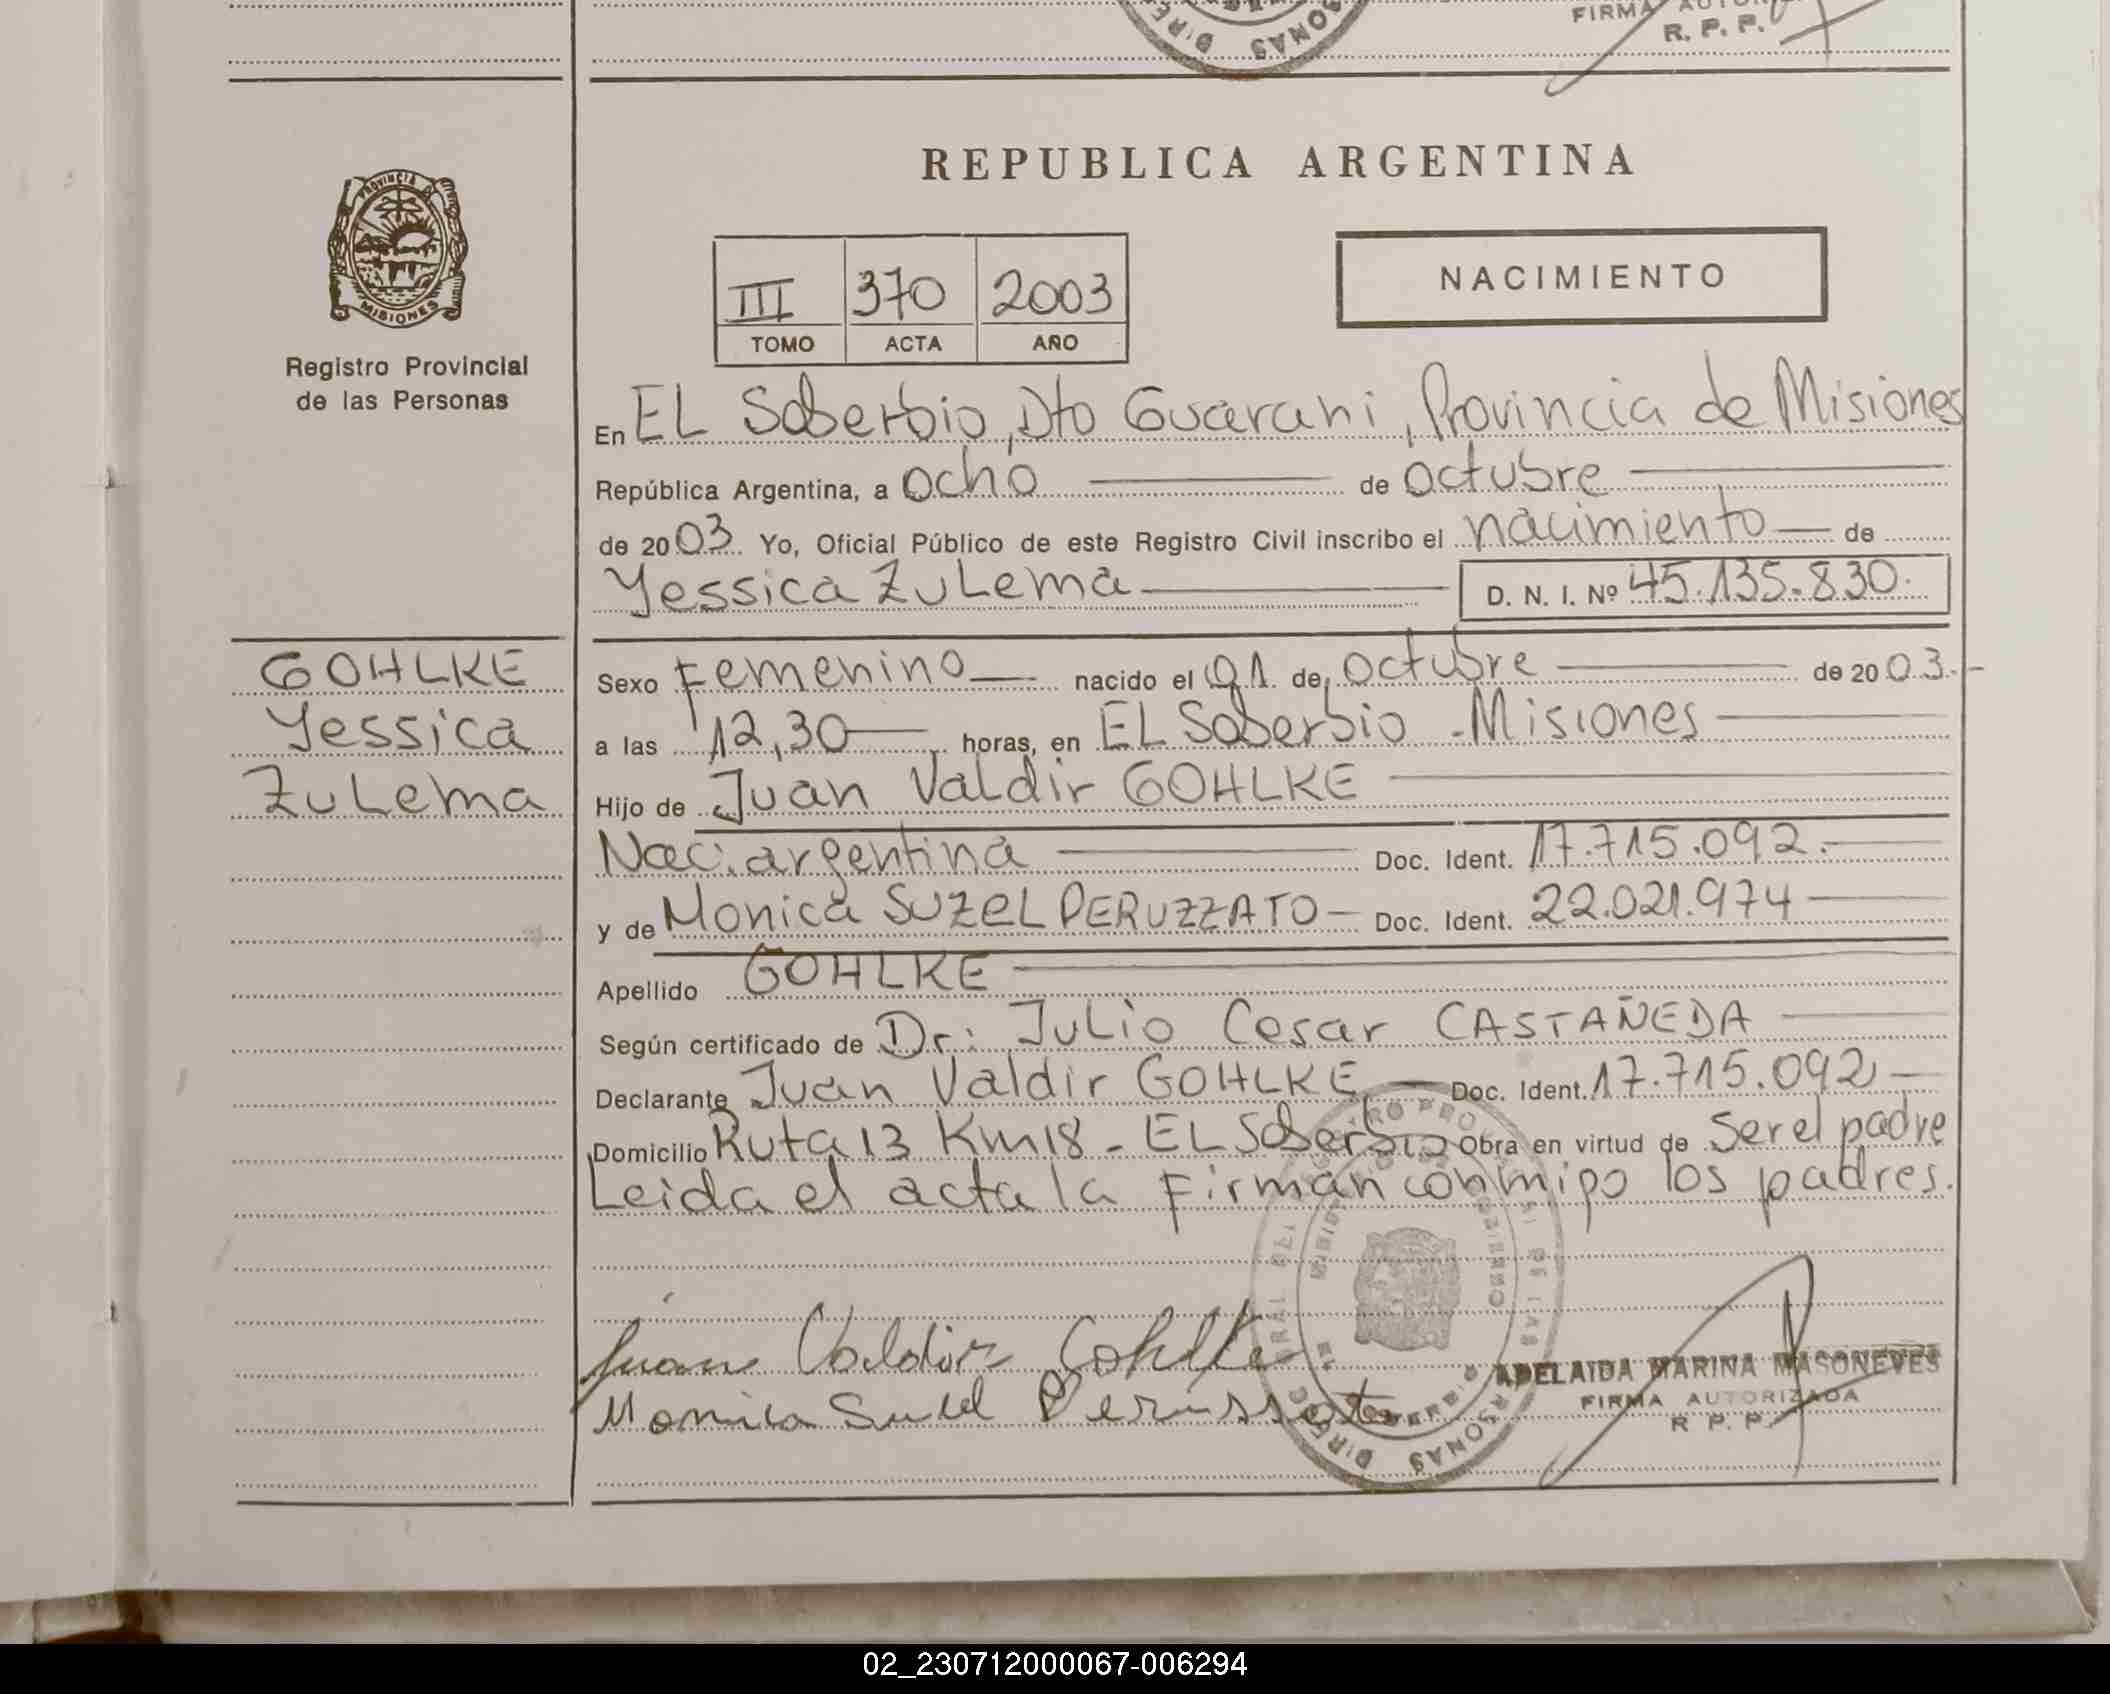 FIRMA
R. P. P.
REPUBLICA ARGENTINA
PROVINCIA DE
MISIONES
Registro Provincial
de las Personas
III 370 2003
TOMO ACTA AÑO
NACIMIENTO
En EL Soberbio, Dto Guarani, Provincia de Misiones
República Argentina, a ocho de octubre
de 2003 Yo, Oficial Público de este Registro Civil inscribo el nacimiento de
Yessica ZuLema D. N. I. Nº 45.135.830.
GOHLKE
Yessica
ZuLema
Sexo Femenino nacido el 01 de octubre de 2003.-
a las 12,30 horas, en EL Soberbio - Misiones
Hijo de Juan Valdir GOHLKE
Nac. argentina Doc. Ident. 17.715.092.
y de Monica SUZEL PERUZZATO Doc. Ident. 22.021.974
Apellido GOHLKE
Según certificado de Dr: Julio Cesar CASTAÑEDA
Declarante Juan Valdir GOHLKE Doc. Ident. 17.715.092
Domicilio Ruta 13 Km 18 - EL Soberbio Obra en virtud de ser el padre
Leida el acta la Firman conmigo los padres.
Juan Valdir Gohlke
Monica Suzel Perussato
ADELAIDA MARINA MASONEVES
FIRMA AUTORIZADA
R. P. P.
02_230712000067-006294